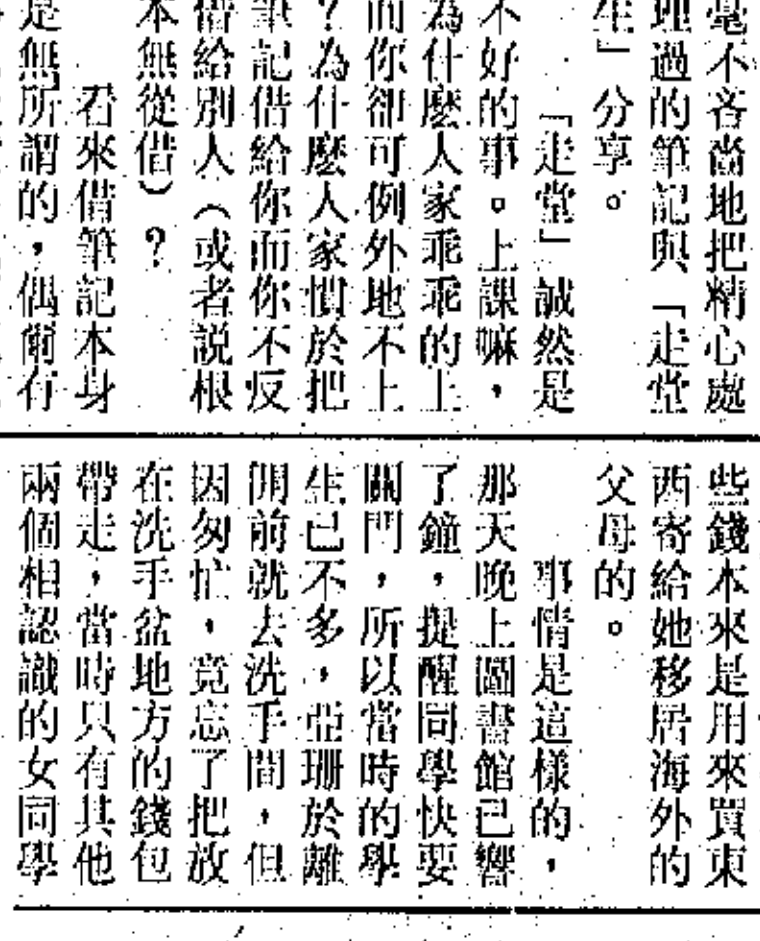 毫不吝嗇地把精心處
理過的筆記與「走堂
生」分享。
「走堂」誠然是
不好的事。上課嘛，
為什麼人家乖乖的上
而你卻可例外地不上
？為什麼人家慣於把
筆記借給你而你不反
借給別人（或者説根
本無從借）？
看來借筆記本身
是無所謂的，偶爾有
些錢本來是用來買東
西寄給她移居海外的
父母的。
事情是這樣的，
那天晚上圖書館已響
了鐘，提醒同學快要
關門，所以當時的學
生已不多，亞珊於離
開前就去洗手間，但
因匆忙，竟忘了把放
在洗手盆地方的錢包
帶走，當時只有其他
兩個相認識的女同學